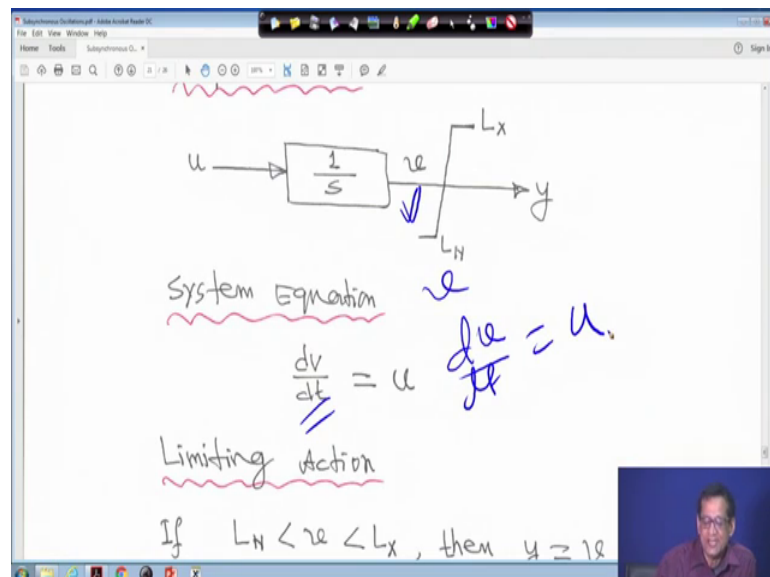 Subsynchronous Oscillations.pdf - Adobe Acrobat Reader DC
File Edit View Window Help
Home Tools Subsynchronous O... × Sign I
21 / 26
u 1/s v L_X y
L_N
System Equation v
dv/dt = u dv/dt = u
Limiting Action
If L_N < v < L_X, then y = v